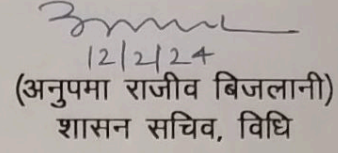 12/2/24
(अनुपमा राजीव बिजलानी)
शासन सचिव, विधि